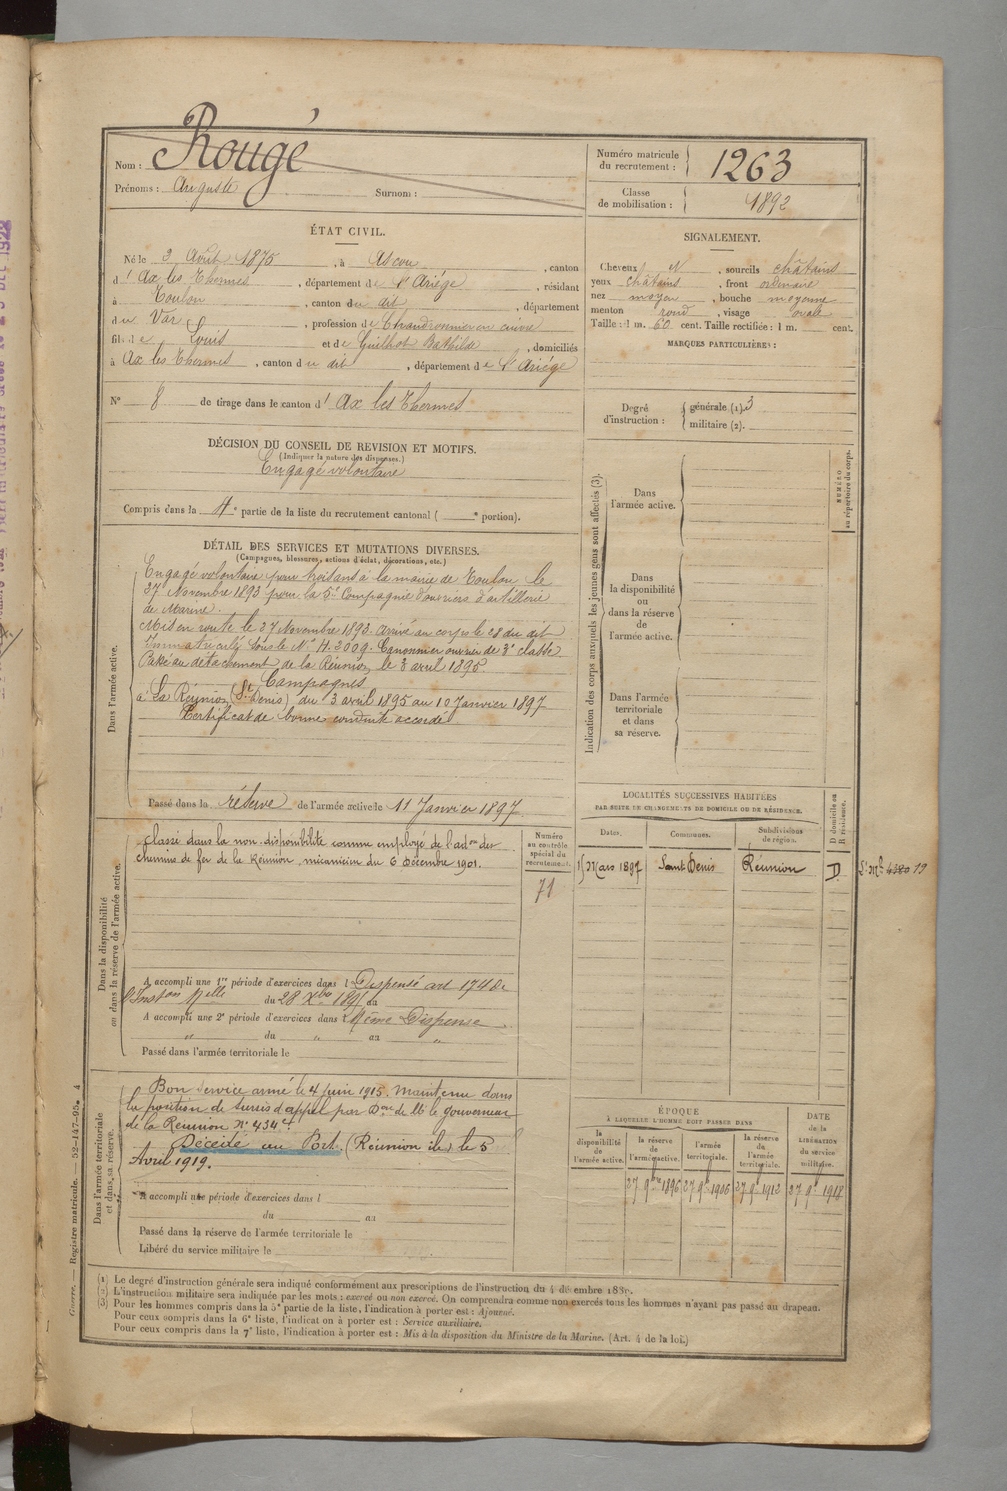 Nom : Rougé
Prénoms : Auguste Surnom :
Numéro matricule du recrutement : 1263
Classe de mobilisation : 1892
ÉTAT CIVIL.
Né le 3 Avril 1875, à Ascou, canton
d'Ax les Thermes, département de l'Ariége, résidant
à Toulon, canton du dit, département
du Var, profession de Chaudronnier en cuivre
fils de Louis et de Guilhot Bathilde, domiciliés
à Ax les Thermes, canton du dit, département de l'Ariége
N° 8 de tirage dans le canton d'Ax les Thermes
SIGNALEMENT.
Cheveux N, sourcils châtains
yeux châtains, front ordinaire
nez moyen, bouche moyenne
menton rond, visage ovale
Taille : 1 m. 60 cent. Taille rectifiée : 1 m. cent.
MARQUES PARTICULIÈRES :
Degré d'instruction : générale (1). 3
militaire (2).
DÉCISION DU CONSEIL DE REVISION ET MOTIFS.
(Indiquer la nature des dispenses.)
Engagé volontaire
Compris dans la 4e partie de la liste du recrutement cantonal ( e portion).
DÉTAIL DES SERVICES ET MUTATIONS DIVERSES.
(Campagnes, blessures, actions d'éclat, décorations, etc.)
Dans l'armée active.
Engagé volontaire pour trois ans à la mairie de Toulon le
27 Novembre 1893 pour la 5e Compagnie d'ouvriers d'artillerie
de Marine.
Mis en route le 27 Novembre 1893. Arrivé au corps le 28 du dit
Immatriculé sous le N° H. 2009. Canonnier ouvrier de 3e classe
Passé au détachement de la Réunion le 3 avril 1895.
Campagnes
à La Réunion (St Denis) du 3 avril 1895 au 10 Janvier 1897
Certificat de bonne conduite accordé
Passé dans la réserve de l'armée active le 11 Janvier 1897
Indication des corps auxquels les jeunes gens sont affectés (3).
Dans l'armée active.
Dans la disponibilité ou dans la réserve de l'armée active.
Dans l'armée territoriale et dans sa réserve.
NUMÉRO au répertoire du corps.
Dans la disponibilité ou dans la réserve de l'armée active.
Classé dans la non-disponibilité comme employé de l'adon des
chemins de fer de la Réunion, mécanicien du 6 Décembre 1901.
Numéro au contrôle spécial du recrutement.
71
A accompli une 1re période d'exercices dans l Dispensé art 174 de
l'Inston Melle du 28 Xbre 1895 au
A accompli une 2e période d'exercices dans l Même Dispense
" du " au "
Passé dans l'armée territoriale le
LOCALITÉS SUCCESSIVES HABITÉES
PAR SUITE DE CHANGEMENTS DE DOMICILE OU DE RÉSIDENCE.
Dates. Communes. Subdivisions de région. D domicile ou R résidence.
15 Mars 1897 Saint Denis Réunion D.
Dans l'armée territoriale et dans sa réserve.
Bon service armé le 4 Juin 1915. Maintenu dans
la position de sursis d'appel par Don de Mr le Gouverneur
de la Réunion N° 434
Décédé au Port (Réunion île) le 5
Avril 1919.
A accompli une période d'exercices dans l
du au
Passé dans la réserve de l'armée territoriale le
Libéré du service militaire le
ÉPOQUE
À LAQUELLE L'HOMME DOIT PASSER DANS
la disponibilité de l'armée active. la réserve de l'armée active. l'armée territoriale. la réserve de l'armée territoriale.
DATE de la LIBÉRATION du service militaire.
27 9bre 1896 27 9bre 1906 27 9bre 1912 27 9bre 1918
(1) Le degré d'instruction générale sera indiqué conformément aux prescriptions de l'instruction du 4 décembre 1889.
(2) L'instruction militaire sera indiquée par les mots : exercé ou non exercé. On comprendra comme non exercés tous les hommes n'ayant pas passé au drapeau.
(3) Pour les hommes compris dans la 5e partie de la liste, l'indication à porter est : Ajourné.
Pour ceux compris dans la 6e liste, l'indication à porter est : Service auxiliaire.
Pour ceux compris dans la 7e liste, l'indication à porter est : Mis à la disposition du Ministre de la Marine. (Art. 4 de la loi.)
Guerre. — Registre matricule. — 52-147-95. 4